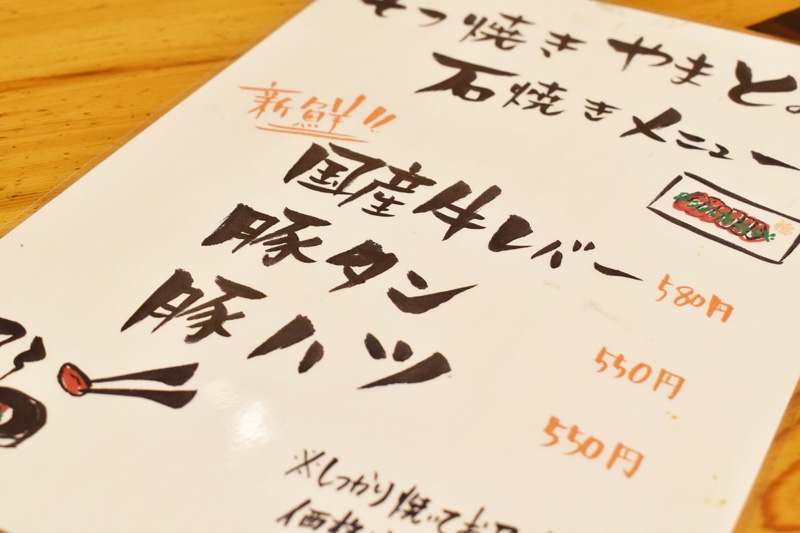 もつ焼き やまと。
石焼きメニュー
新鮮!!
国産牛レバー 580円
豚タン 550円
豚ハツ 550円
※しっかり焼いてお
価格